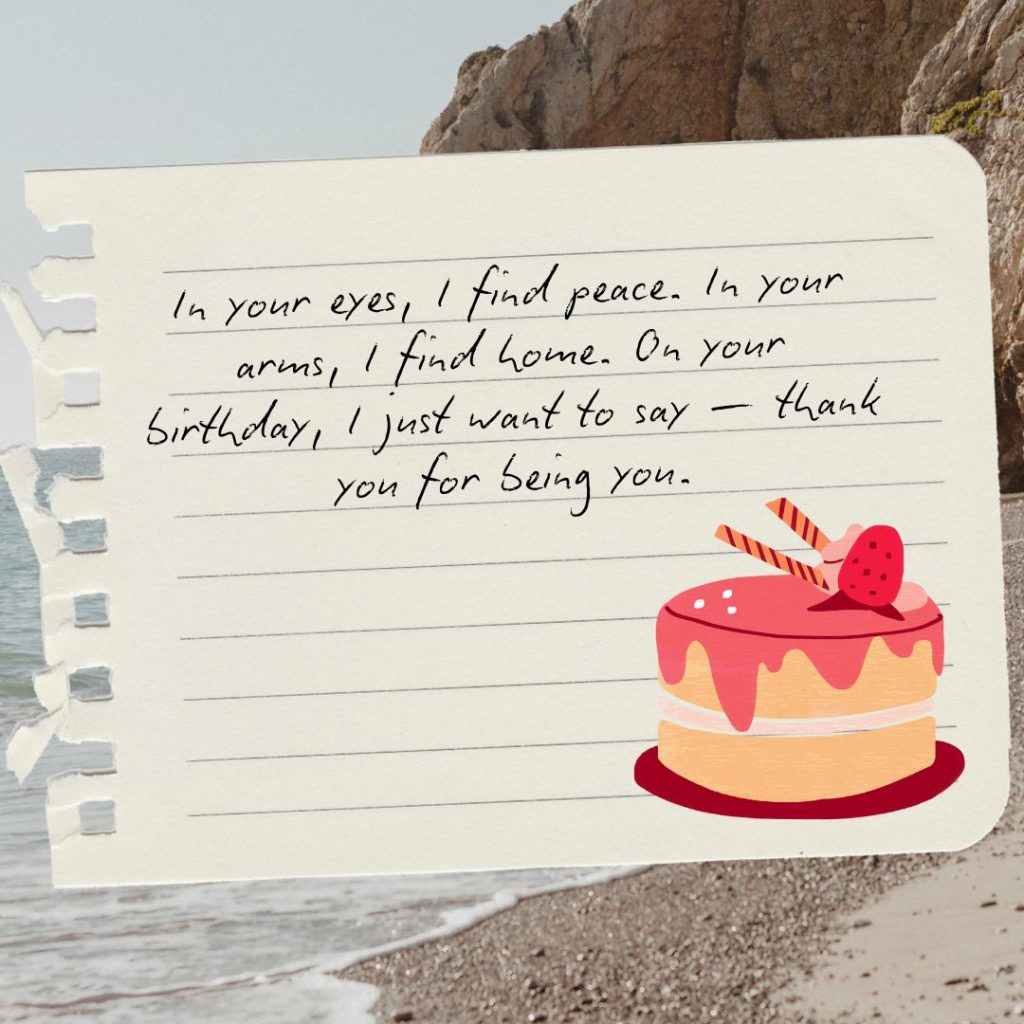 In your eyes, I find peace. In your
arms, I find home. On your
birthday, I just want to say – thank
you for being you.